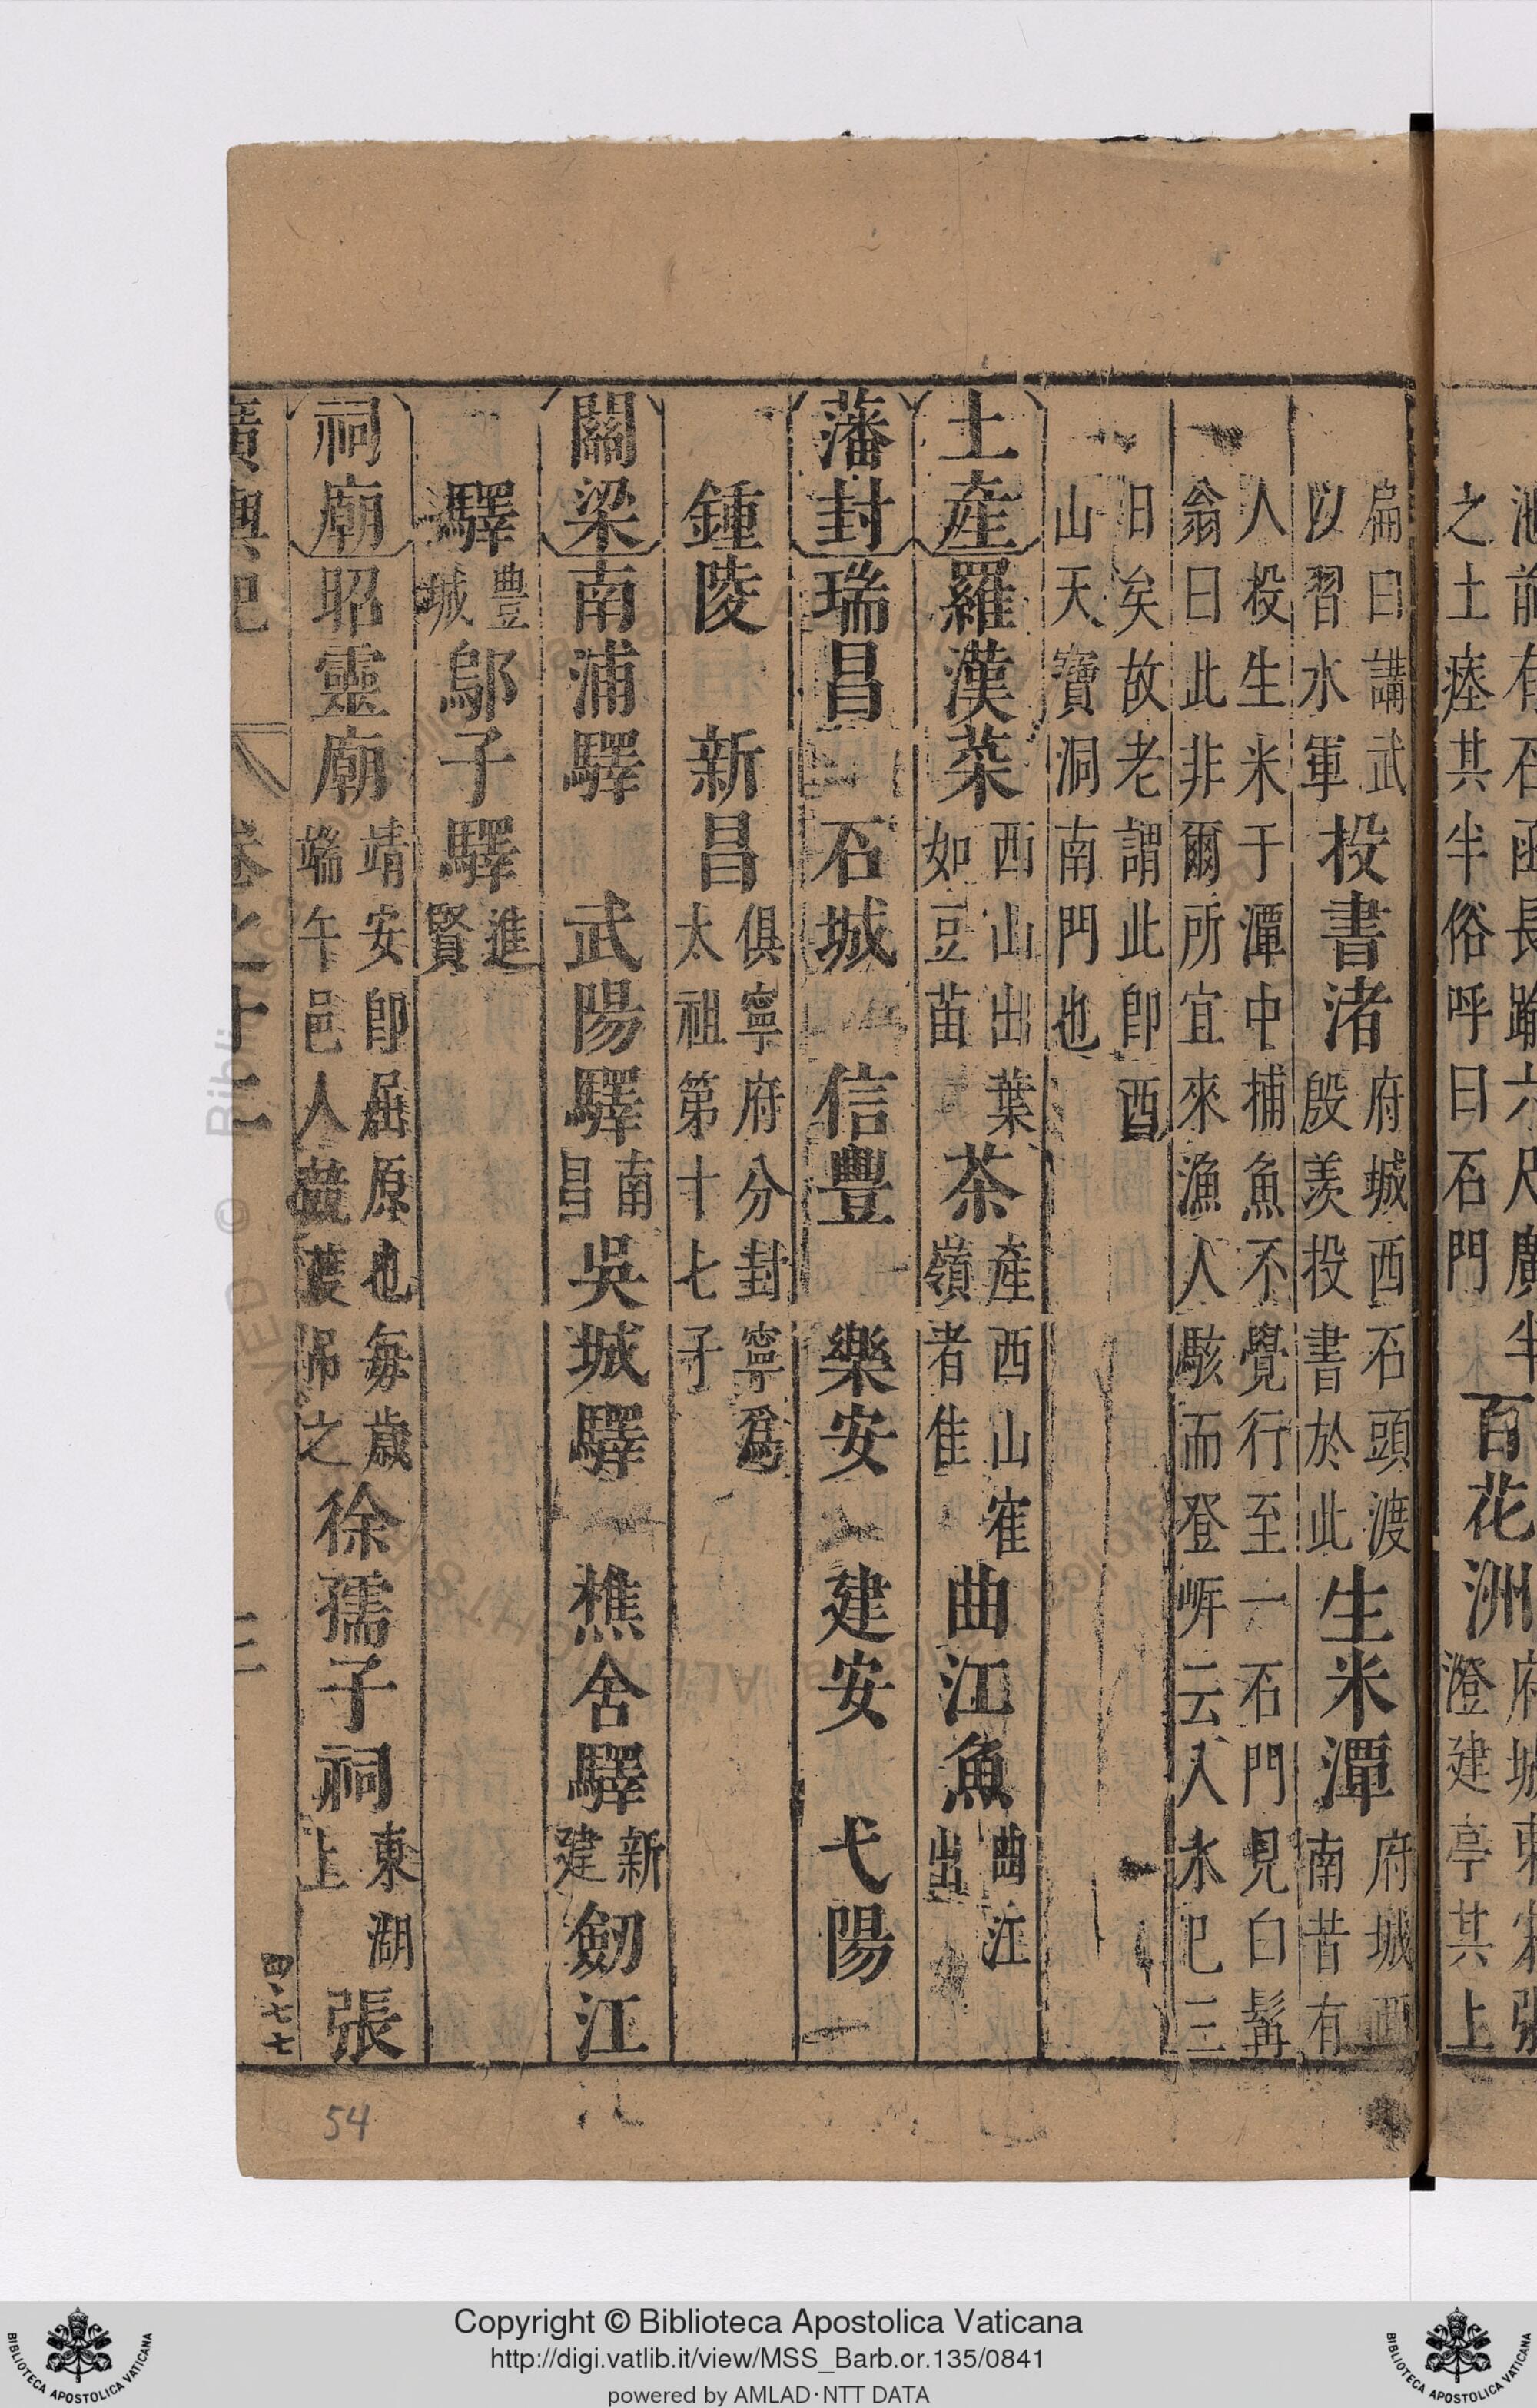 之土瘞其半俗呼曰石門
百花洲
澄建亭其上
扁曰講武
以習水軍
投書渚
府城西石頭渡
殷羨投書於此
生米潭
府城西
南昔有
人投生米于潭中捕魚不覺行至一石門見白髯
翁曰此非爾所宜來漁人駭而登岸云入水巳三
日矣故老謂此卽酉
山天寶洞南門也
土産
羅漢菜
西山出葉
如豆苗
茶
産西山寉
嶺者佳
曲江魚
曲江
出
藩封
瑞昌 石城 信豐 樂安 建安 弋陽
鍾陵 新昌
俱寧府分封寧爲
太祖第十七子
關梁
南浦驛 武陽驛
南
昌
吳城驛 樵舍驛
新
建
劒江
驛
豊
城
鄔子驛
進
賢
祠廟
昭靈廟
靖安卽屈原也每歲
端午邑人
吊之
徐孺子祠
東湖
上
張
四·七七
54
Copyright © Biblioteca Apostolica Vaticana
http://digi.vatlib.it/view/MSS_Barb.or.135/0841
powered by AMLAD·NTT DATA
BIBLIOTECA APOSTOLICA VATICANA
BIBLIOTECA APOSTOLICA VATICANA